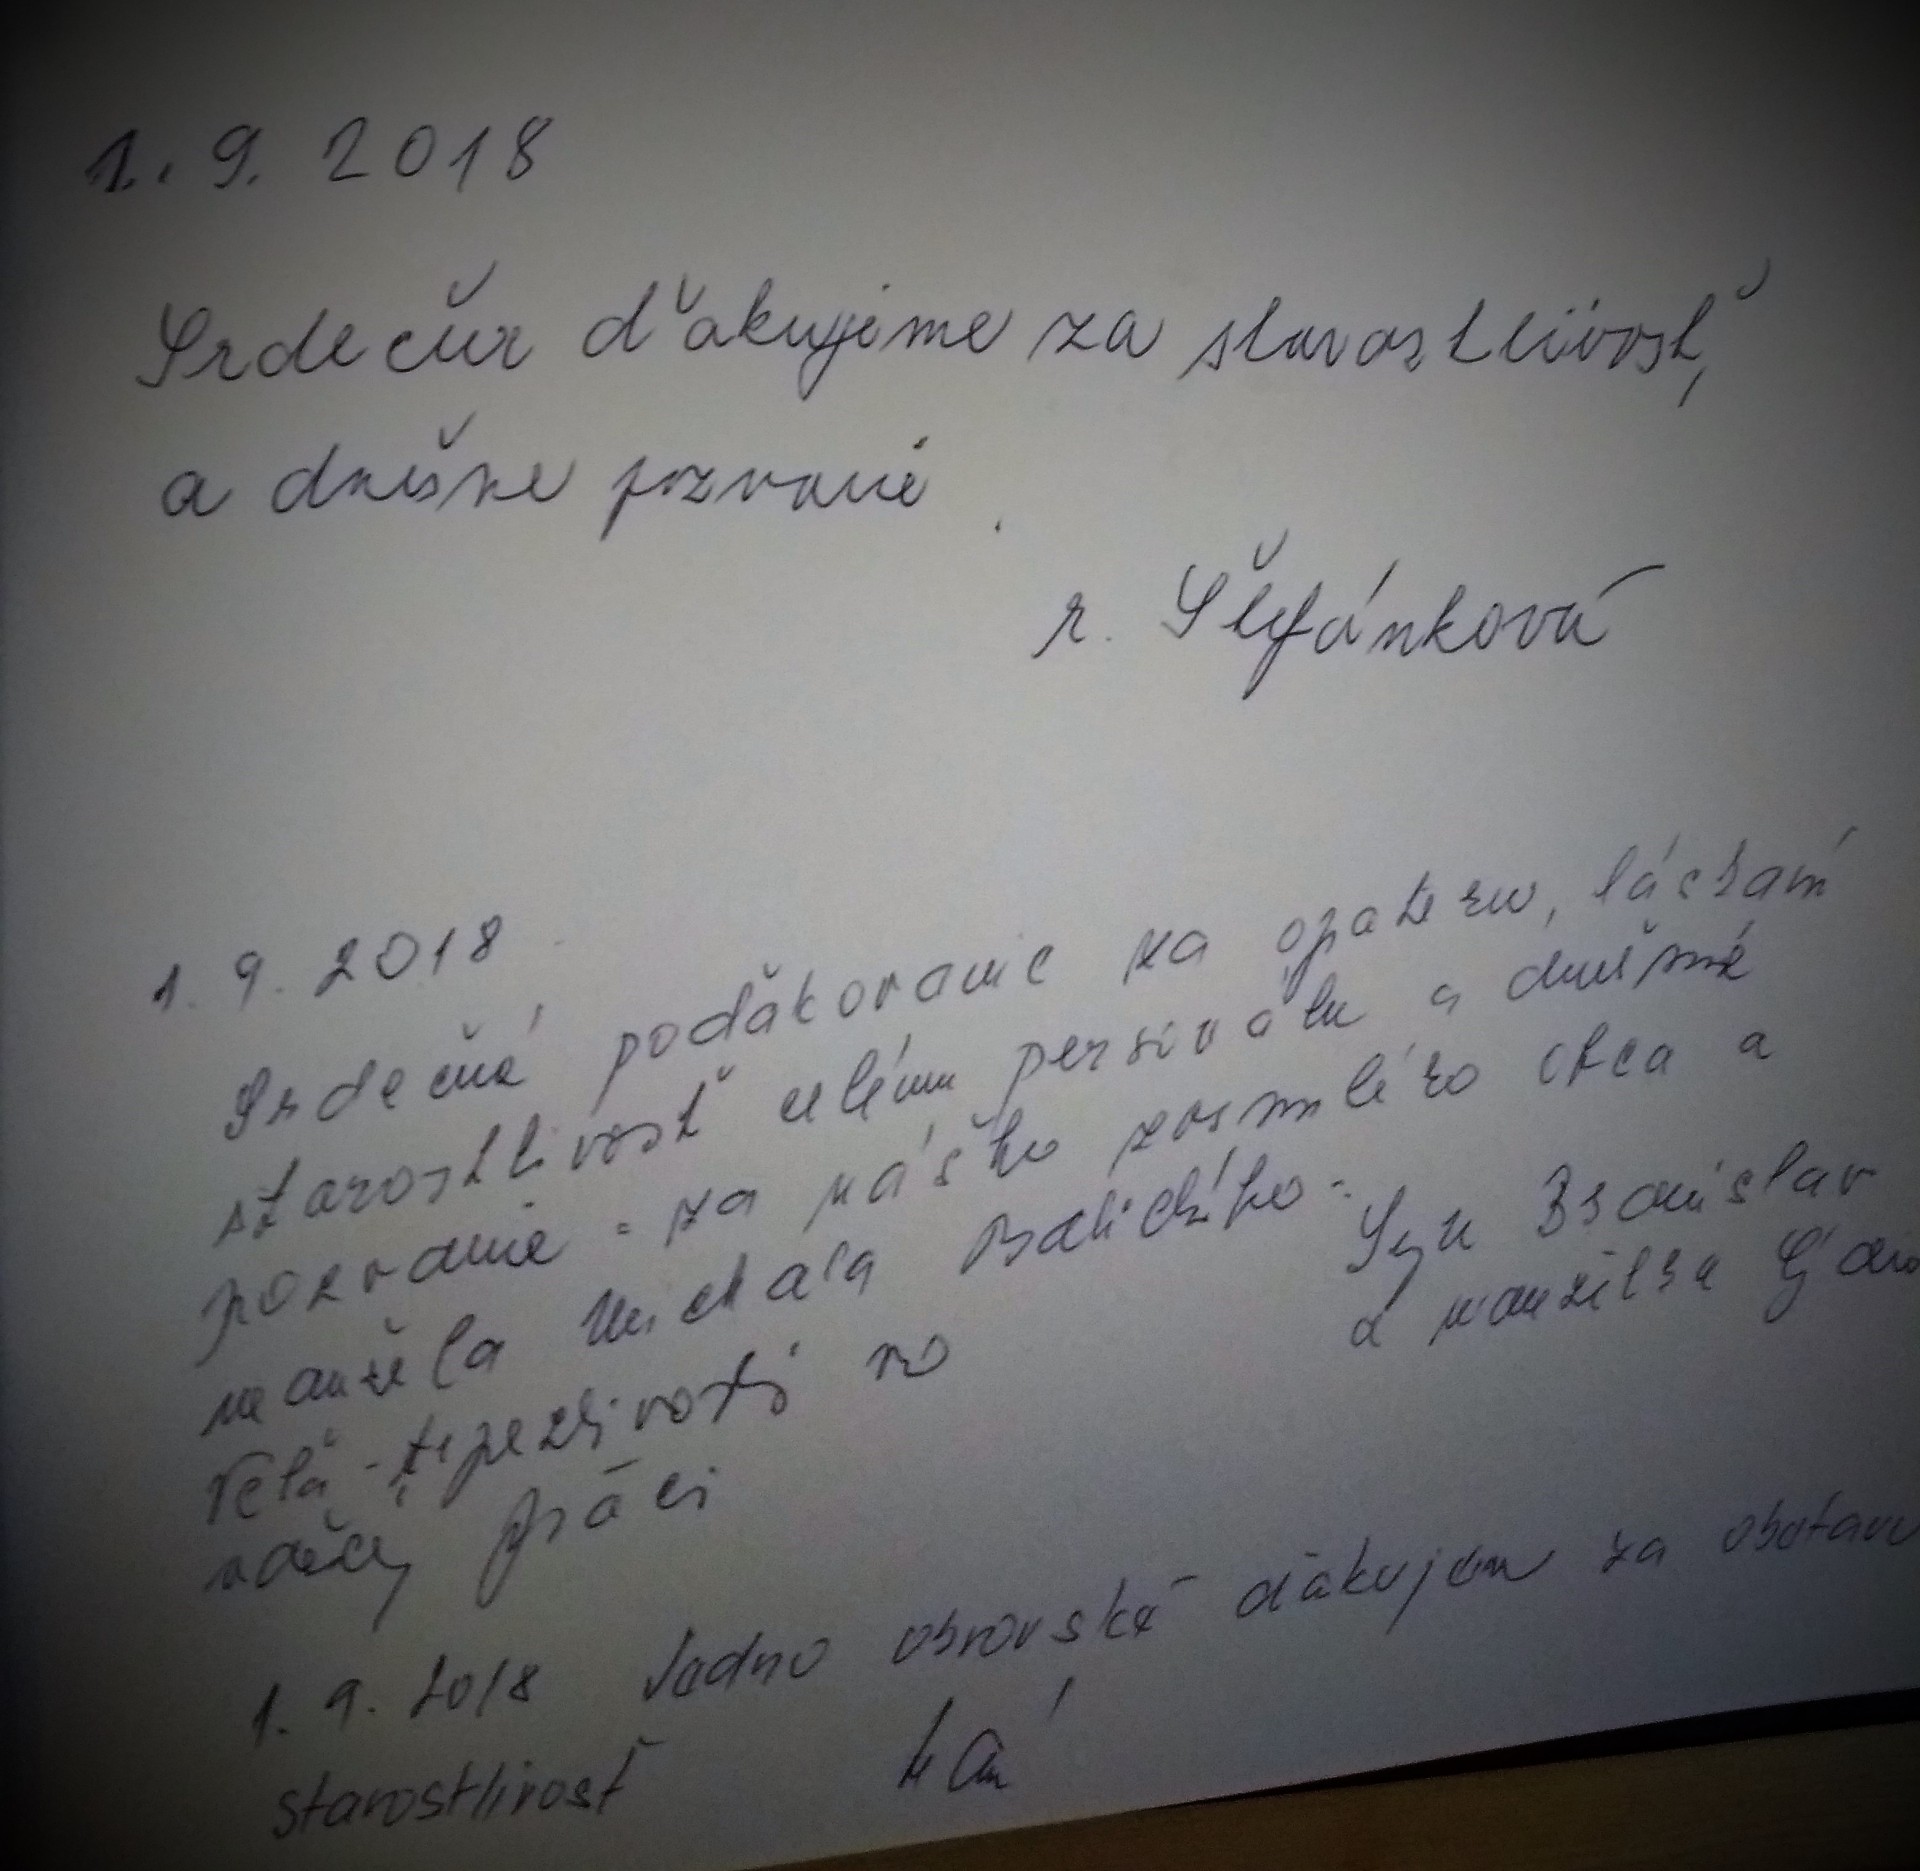 1. 9. 2018
Srdečne ďakujeme za starostlivosť,
a dnešne pozvanie.
r. Štefánková
1. 9. 2018
Srdečné poďakovanie za opateru, láskavú
starostlivosť celému personálu a dnešné
pozvanie - za nášho zosnulého otca a
manžela Michala
Syn Branislav
a manželka
Veľa trpezlivosti vo
práci
1. 9. 2018 Jedno obrovské ďakujem za obetavú
starostlivosť